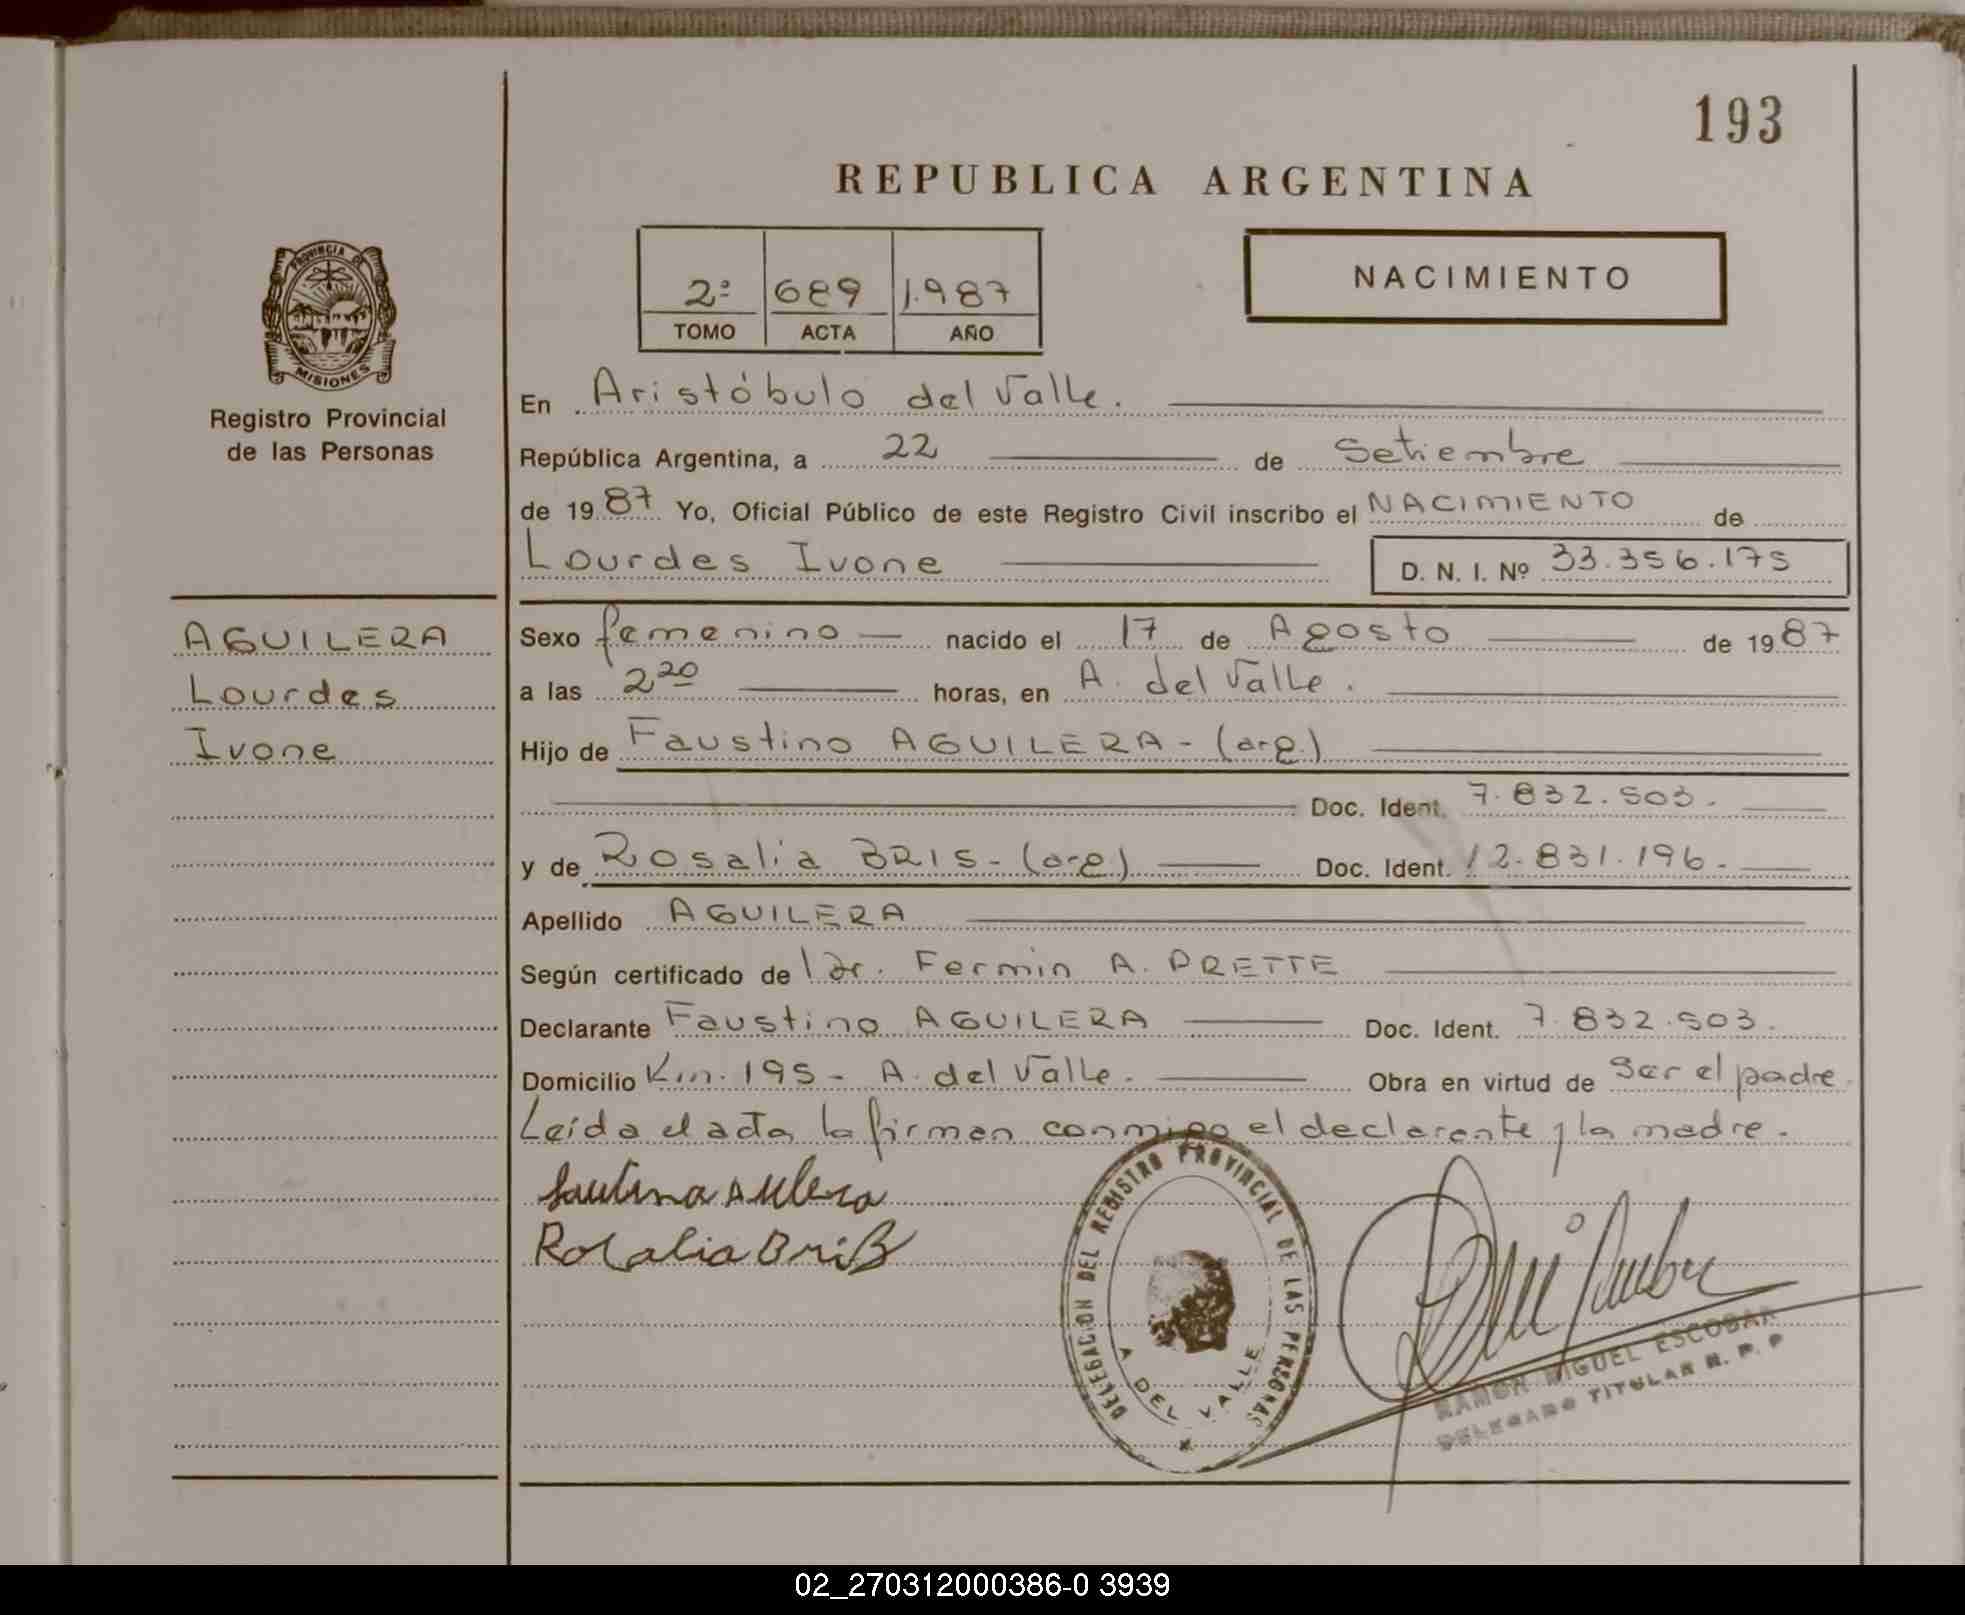 193
REPUBLICA ARGENTINA
2º 689 1.987
TOMO ACTA AÑO
NACIMIENTO
PROVINCIA DE
MISIONES
Registro Provincial
de las Personas
En Aristóbulo del Valle.
República Argentina, a 22 de Setiembre
de 1987 Yo, Oficial Público de este Registro Civil inscribo el NACIMIENTO de
Lourdes Ivone D. N. I. Nº 33.356.175
AGUILERA
Lourdes
Ivone
Sexo femenino nacido el 17 de Agosto de 1987
a las 2 20 horas, en A. del Valle.
Hijo de Faustino AGUILERA - (arg.)
Doc. Ident. 7.832.503.
y de Rosalia BRIS - (arg.) Doc. Ident. 12.831.196.
Apellido AGUILERA
Según certificado de Dr. Fermin A. PRETTE
Declarante Faustino AGUILERA Doc. Ident. 7.832.503.
Domicilio Km. 195 - A. del Valle. Obra en virtud de Ser el padre.
Leída el acta, la firman conmigo el declarante y la madre.
Rosalia Bris
DELEGACION DEL REGISTRO PROVINCIAL DE LAS PERSONAS
A. DEL VALLE
RAMON MIGUEL ESCOBAR
DELEGADO TITULAR R. P. P
02_270312000386-0 3939